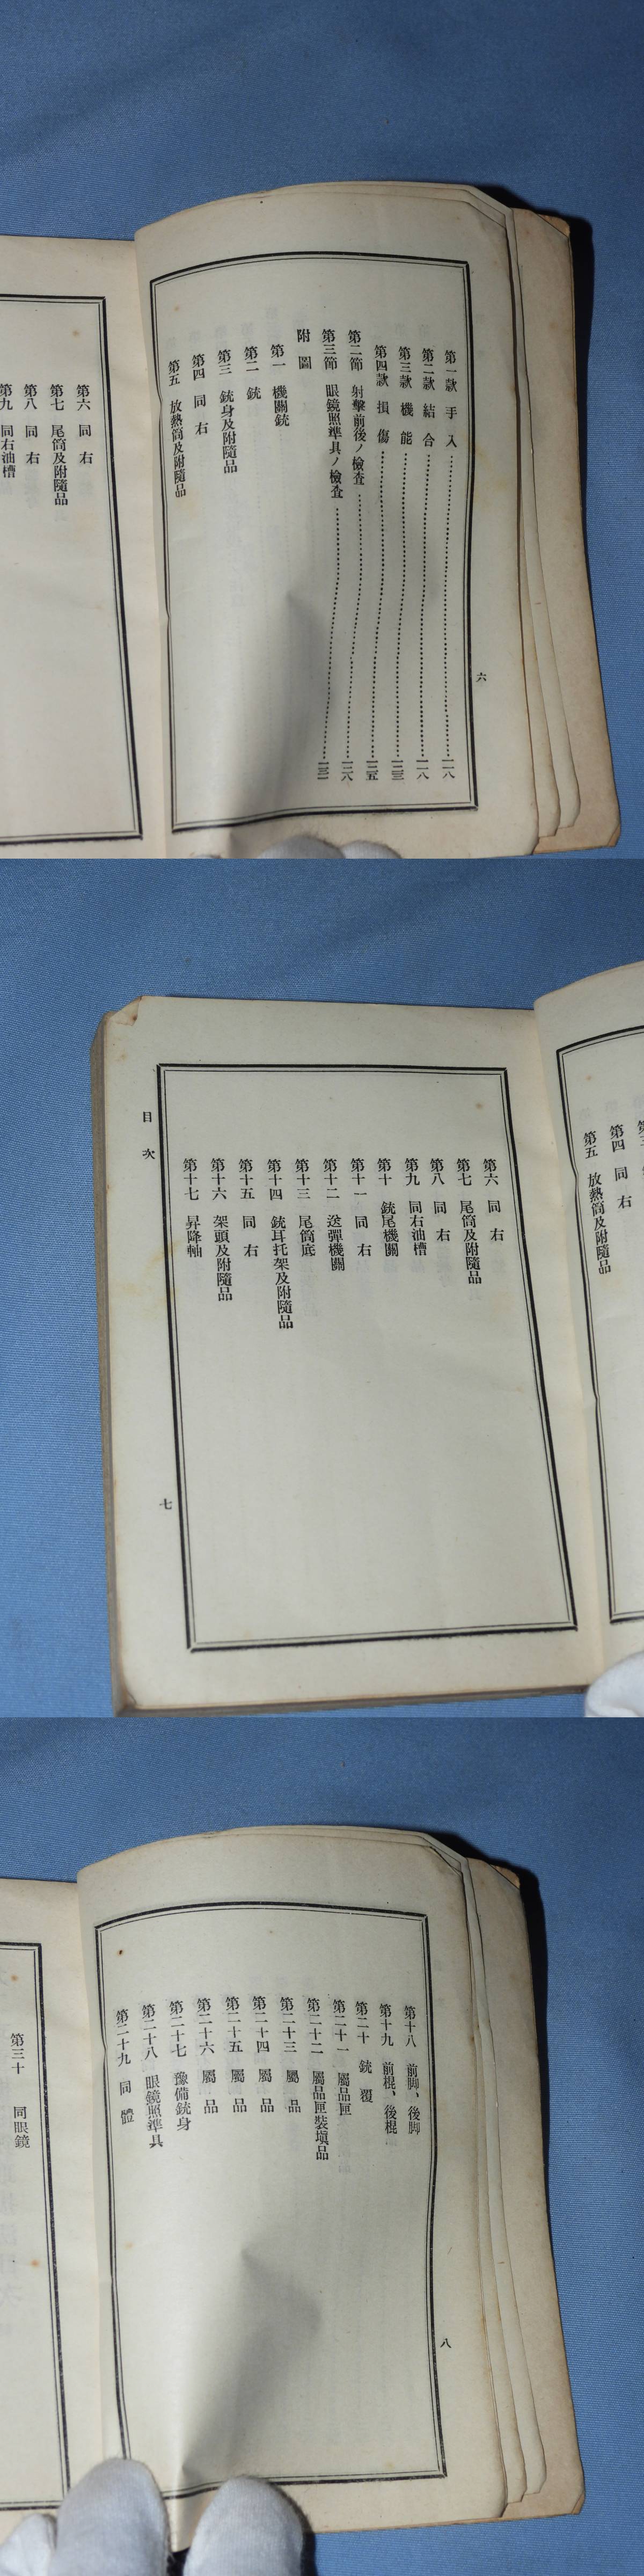 第一款 手入 一一八
第二款 結合 一一八
第三款 機能 一二三
第四款 損傷 一二五
第二節 射擊前後ノ檢査 一二八
第三節 眼鏡照準具ノ檢査 一三一
附圖
第一 機關銃
第二 銃
第三 銃身及附隨品
第四 同右
第五 放熱筒及附隨品
六
第六 同右
第七 尾筒及附隨品
第八 同右
第九 同右油槽
第三
第四 同右
第五 放熱筒及附隨品
第六 同右
第七 尾筒及附隨品
第八 同右
第九 同右油槽
第十 銃尾機關
第十一 同右
第十二 送彈機關
第十三 尾筒底
第十四 銃耳托架及附隨品
第十五 同右
第十六 架頭及附隨品
第十七 昇降軸
目次
七
第十八 前脚、後脚
第十九 前棍、後棍
第二十 銃覆
第二十一 屬品匣
第二十二 屬品匣裝塡品
第二十三 屬品
第二十四 屬品
第二十五 屬品
第二十六 屬品
第二十七 豫備銃身
第二十八 眼鏡照準具
第二十九 同體
八
第三十 同眼鏡